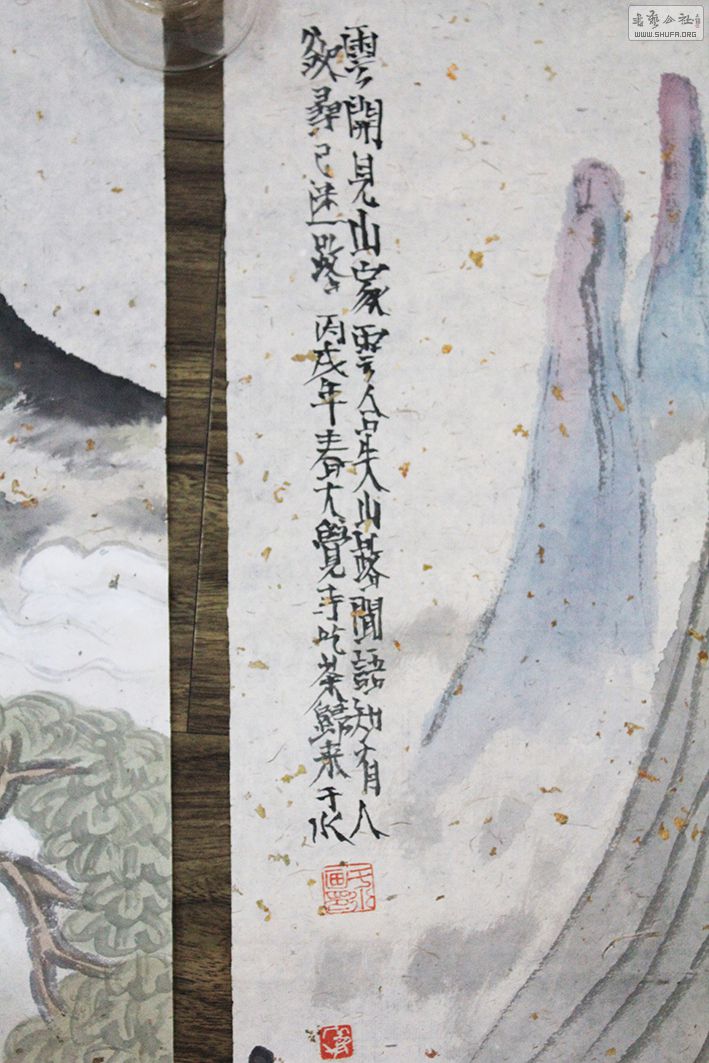 雲開見山家雲合失山路聞語知有人
欲尋己迷路 丙戌年春大覺寺吃茶歸来于水
WWW.SHUFA.ORG